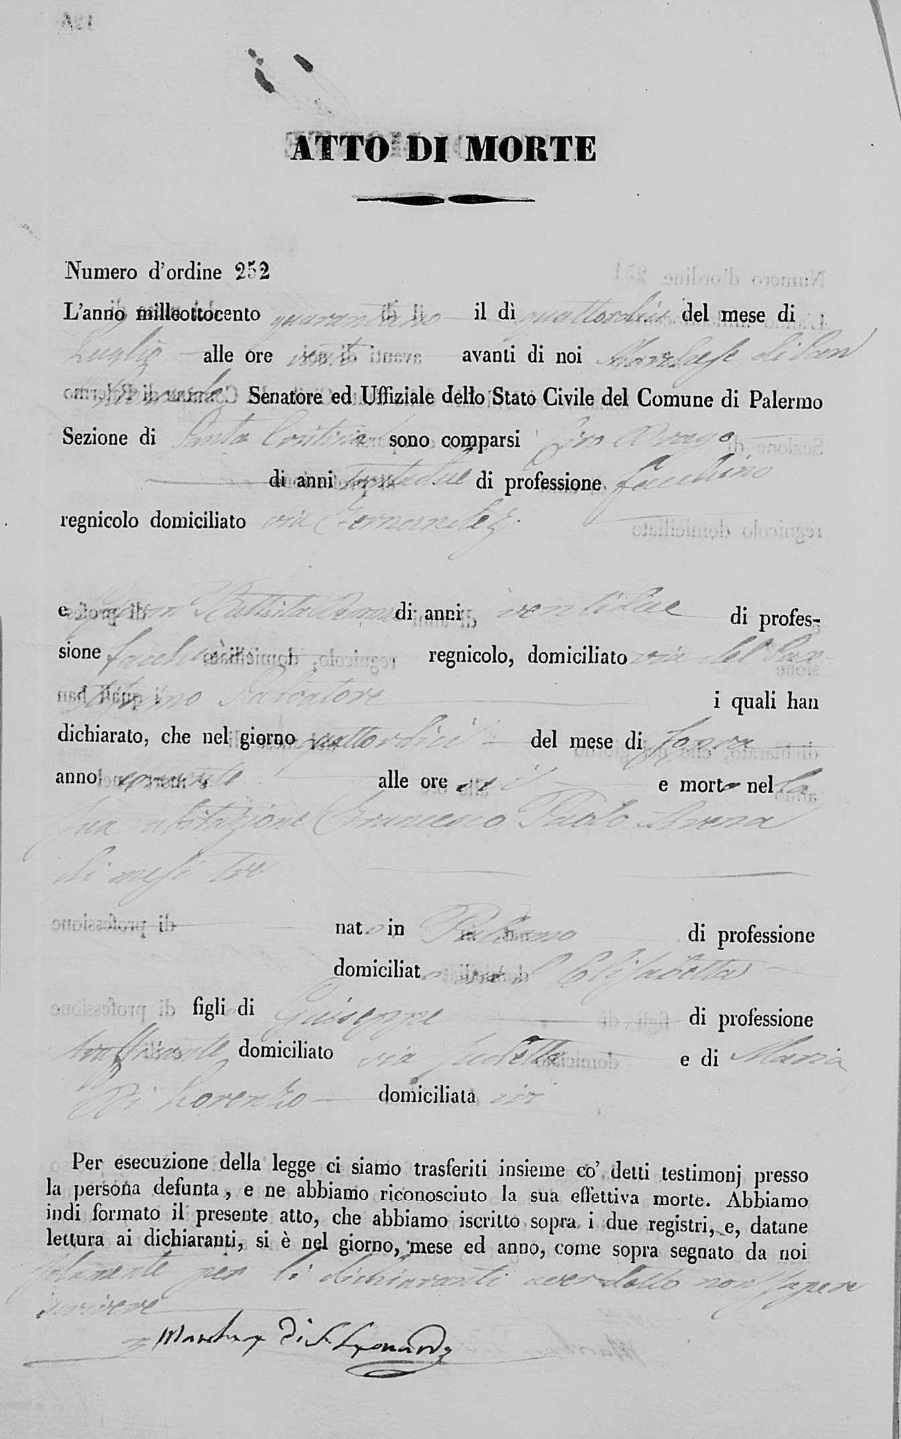 ATTO DI MORTE
Numero d'ordine 252
L'anno milleottocento il dì quattordici del mese di
Luglio alle ore venti avanti di noi Marchese di San
Leonardo Senatore ed Uffiziale dello Stato Civile del Comune di Palermo
Sezione di Santa Cristina sono comparsi Drago
di anni trentadue di professione facchino
regnicolo domiciliato via
e di anni ventidue di profes-
sione facchino regnicolo, domiciliato via del
Salvatore i quali han
dichiarato, che nel giorno quattordici del mese di sopra
anno corrente alle ore e morto nella
sua abitazione Francesco Paolo Arena
di mesi tre
nato in Palermo di professione
domiciliato Elisabetta
figli di Giuseppe di professione
trafficante domiciliato via Judetta e di Maria
Di Lorenzo domiciliata ivi
Per esecuzione della legge ci siamo trasferiti insieme co' detti testimonj presso
la persona defunta, e ne abbiamo riconosciuto la sua effettiva morte. Abbiamo
indi formato il presente atto, che abbiamo iscritto sopra i due registri, e, datane
lettura ai dichiaranti, si è nel giorno, mese ed anno, come sopra segnato da noi
solamente per li dichiaranti aver detto non sapere
scrivere
Marchese Di S. Leonardo